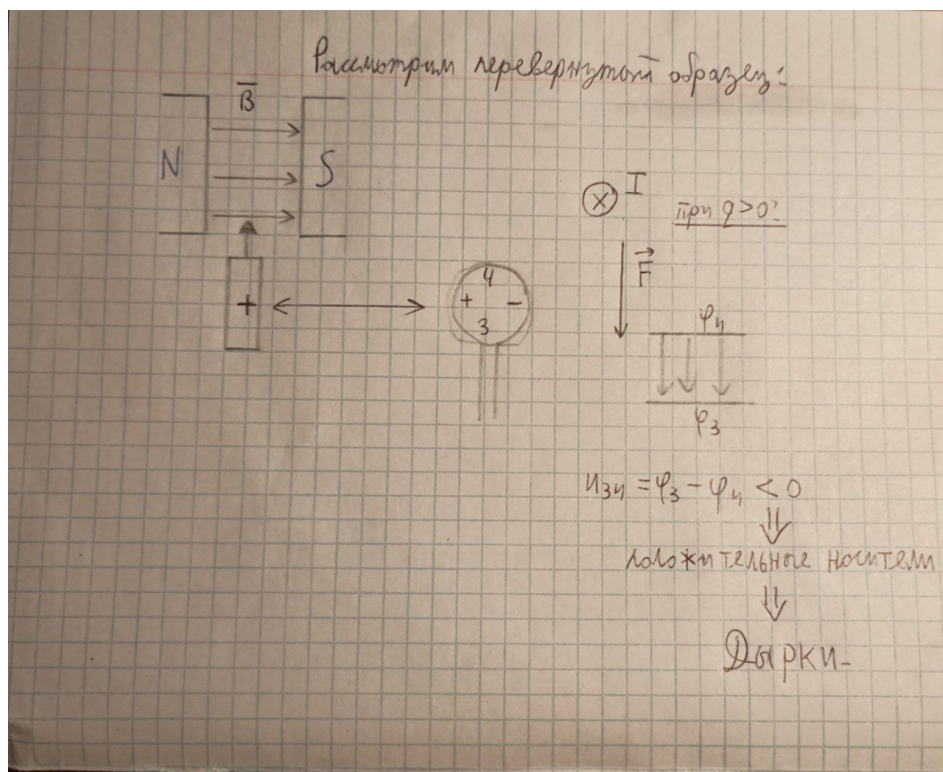 Рассмотрим перевернутый образец:
B̅
N
S
I
при q>0:
F⃗
+
4
+ -
3
φ₄
φ₃
U₃₄ = φ₃ - φ₄ < 0
⇓
положительные носители
⇓
Дырки-